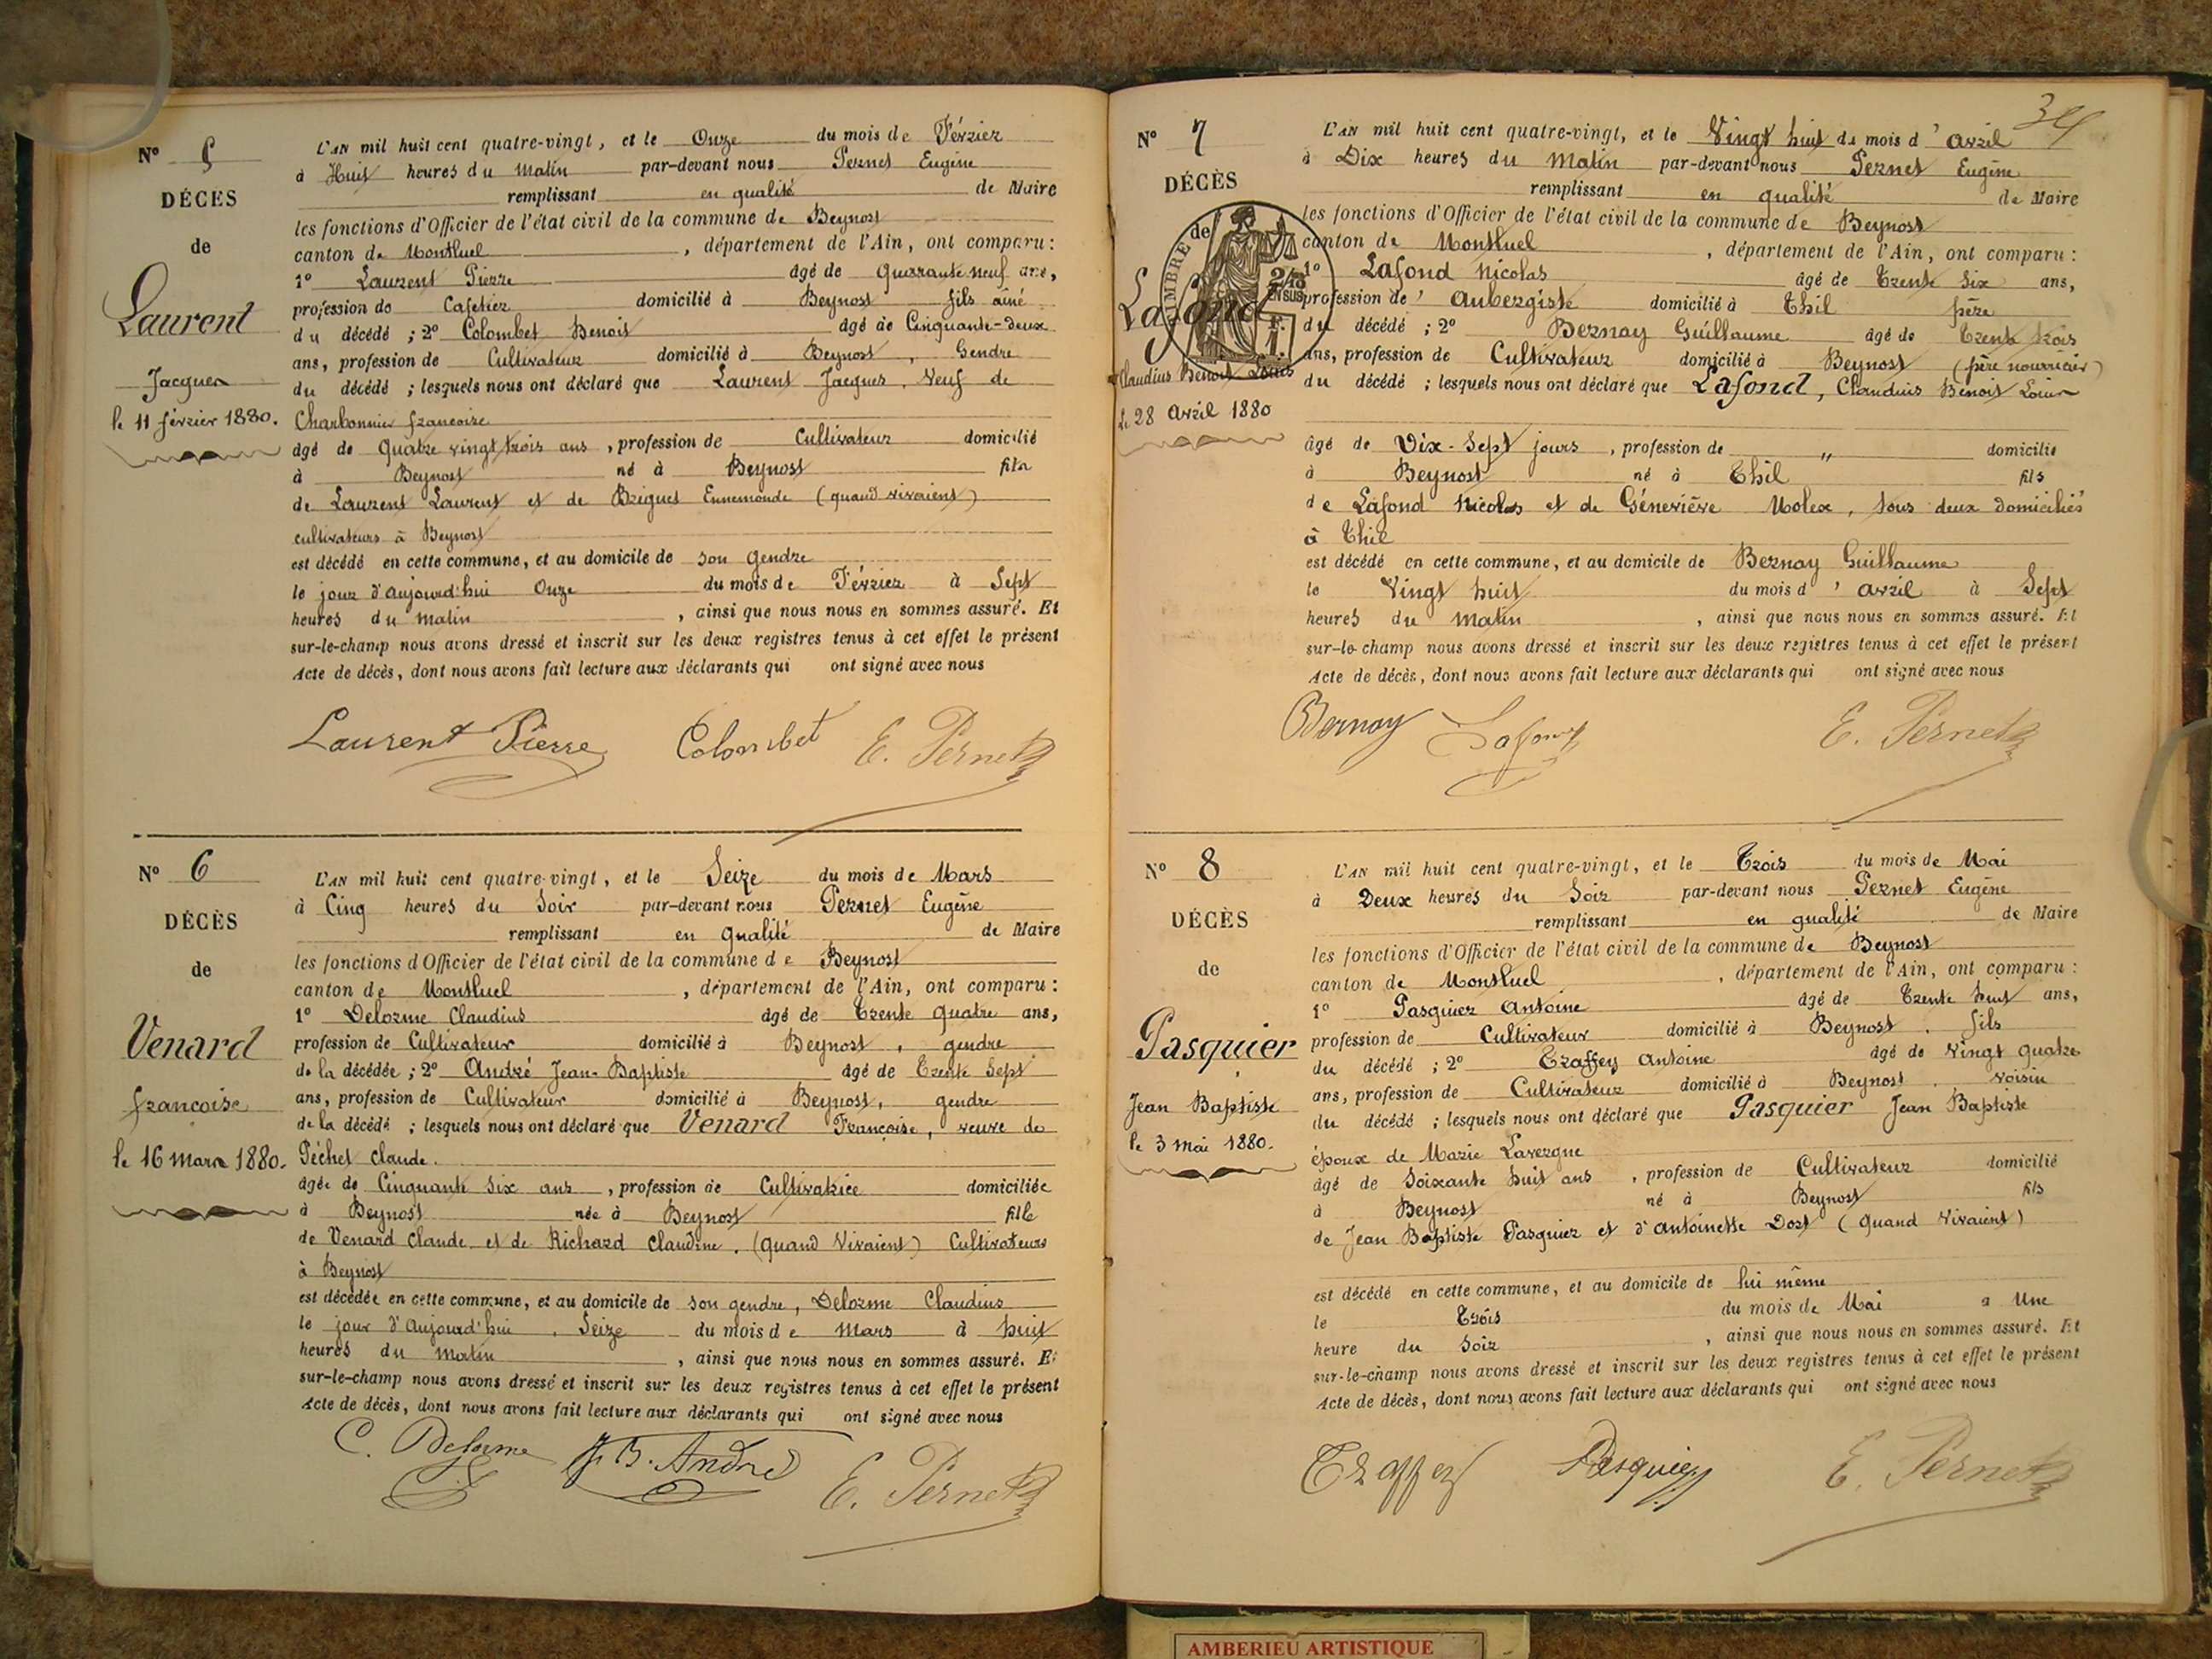 Nº 5
DÉCÈS
de
Laurent
Jacques
le 11 février 1880.
L'AN mil huit cent quatre-vingt, et le Onze du mois de Février
à Huit heures du Matin par-devant nous Pernet Eugène
remplissant en qualité de Maire
les fonctions d'Officier de l'état civil de la commune de Beynost
canton de Montluel, département de l'Ain, ont comparu :
1º Laurent Pierre âgé de Quarante neuf ans,
profession de Cafetier domicilié à Beynost fils aîné
du décédé ; 2º Colombet Benoit âgé de Cinquante-deux
ans, profession de Cultivateur domicilié à Beynost, Gendre
du décédé ; lesquels nous ont déclaré que Laurent Jacques, Veuf de
Charbonnier françoise
âgé de Quatre vingt trois ans, profession de Cultivateur domicilié
à Beynost né à Beynost fils
de Laurent Laurent et de Briguet Ennemonde (quand vivaient)
cultivateurs à Beynost
est décédé en cette commune, et au domicile de son gendre
le jour d'aujourd'hui Onze du mois de Février à Sept
heures du matin, ainsi que nous nous en sommes assuré. Et
sur-le-champ nous avons dressé et inscrit sur les deux registres tenus à cet effet le présent
Acte de décès, dont nous avons fait lecture aux déclarants qui ont signé avec nous
Laurent Pierre Colombet E. Pernet
Nº 6
DÉCÈS
de
Venard
françoise
le 16 mars 1880.
L'AN mil huit cent quatre-vingt, et le Seize du mois de Mars
à Cinq heures du Soir par-devant nous Pernet Eugène
remplissant en qualité de Maire
les fonctions d'Officier de l'état civil de la commune de Beynost
canton de Montluel, département de l'Ain, ont comparu :
1º Delorme Claudius âgé de Trente quatre ans,
profession de Cultivateur domicilié à Beynost, gendre
de la décédée ; 2º André Jean-Baptiste âgé de Trente Sept
ans, profession de Cultivateur domicilié à Beynost, gendre
de la décédé ; lesquels nous ont déclaré que Venard Françoise, veuve de
Péchet Claude.
âgée de Cinquante six ans, profession de Cultivatrice domiciliée
à Beynost née à Beynost fille
de Venard Claude et de Richard Claudine. (quand Vivaient) Cultivateurs
à Beynost
est décédée en cette commune, et au domicile de son gendre, Delorme Claudius
le jour d'Aujourd'hui, Seize du mois de Mars à huit
heures du matin, ainsi que nous nous en sommes assuré. Et
sur-le-champ nous avons dressé et inscrit sur les deux registres tenus à cet effet le présent
Acte de décès, dont nous avons fait lecture aux déclarants qui ont signé avec nous
C. Delorme J. B. André E. Pernet
Nº 7
DÉCÈS
de
TIMBRE
2/10 EN SUS
Lafond
Claudius Benoit Louis
le 28 Avril 1880
L'AN mil huit cent quatre-vingt, et le Vingt huit du mois d'avril
à Dix heures du Matin par-devant nous Pernet Eugène
remplissant en qualité de Maire
les fonctions d'Officier de l'état civil de la commune de Beynost
canton de Montluel, département de l'Ain, ont comparu :
1º Lafond Nicolas âgé de Trente Six ans,
profession de Aubergiste domicilié à Thil père
du décédé ; 2º Bernay Guillaume âgé de Trente trois
ans, profession de Cultivateur domicilié à Beynost (père nourricier)
du décédé ; lesquels nous ont déclaré que Lafond, Claudius Benoit Louis
âgé de Dix-Sept jours, profession de " domicilié
à Beynost né à Thil fils
de Lafond Nicolas et de Géneviève Molex, tous deux domiciliés
à Thil
est décédé en cette commune, et au domicile de Bernay Guillaume
le Vingt huit du mois d'avril à Sept
heures du Matin, ainsi que nous nous en sommes assuré. Et
sur-le-champ nous avons dressé et inscrit sur les deux registres tenus à cet effet le présent
Acte de décès, dont nous avons fait lecture aux déclarants qui ont signé avec nous
Bernay Lafond E. Pernet
Nº 8
DÉCÈS
de
Pasquier
Jean Baptiste
le 3 mai 1880.
L'AN mil huit cent quatre-vingt, et le Trois du mois de Mai
à Deux heures du Soir par-devant nous Pernet Eugène
remplissant en qualité de Maire
les fonctions d'Officier de l'état civil de la commune de Beynost
canton de Montluel, département de l'Ain, ont comparu :
1º Pasquier Antoine âgé de Trente huit ans,
profession de Cultivateur domicilié à Beynost. fils
du décédé ; 2º Traffey Antoine âgé de Vingt quatre
ans, profession de Cultivateur domicilié à Beynost. voisin
du décédé ; lesquels nous ont déclaré que Pasquier Jean Baptiste
époux de Marie Lavergne
âgé de Soixante huit ans, profession de Cultivateur domicilié
à Beynost né à Beynost fils
de Jean Baptiste Pasquier et d'Antoinette Dost (quand Vivaient)
est décédé en cette commune, et au domicile de lui même
le Trois du mois de Mai à Une
heure du Soir, ainsi que nous nous en sommes assuré. Et
sur-le-champ nous avons dressé et inscrit sur les deux registres tenus à cet effet le présent
Acte de décès, dont nous avons fait lecture aux déclarants qui ont signé avec nous
Traffey Pasquier E. Pernet
AMBERIEU ARTISTIQUE